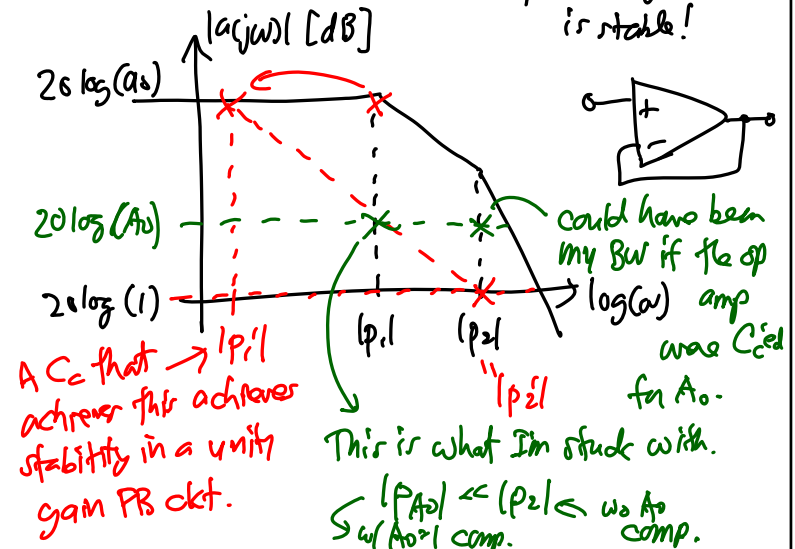 is stable!
|a(jω)| [dB]
20 log(a₀)
+
−
20 log(A₀)
could have been
my BW if the op
amp
were Cc'ed
for A₀.
20 log(1)
log(ω)
|p₁'|
|p₁|
|p₂|
"|p₂'|
A Cc that →
achieves this achieves
stability in a unity
gain FB ckt.
This is what I'm stuck with.
|p_A₀| << |p₂| ← w₀ A₀
comp.
w/ A₀=1 comp.